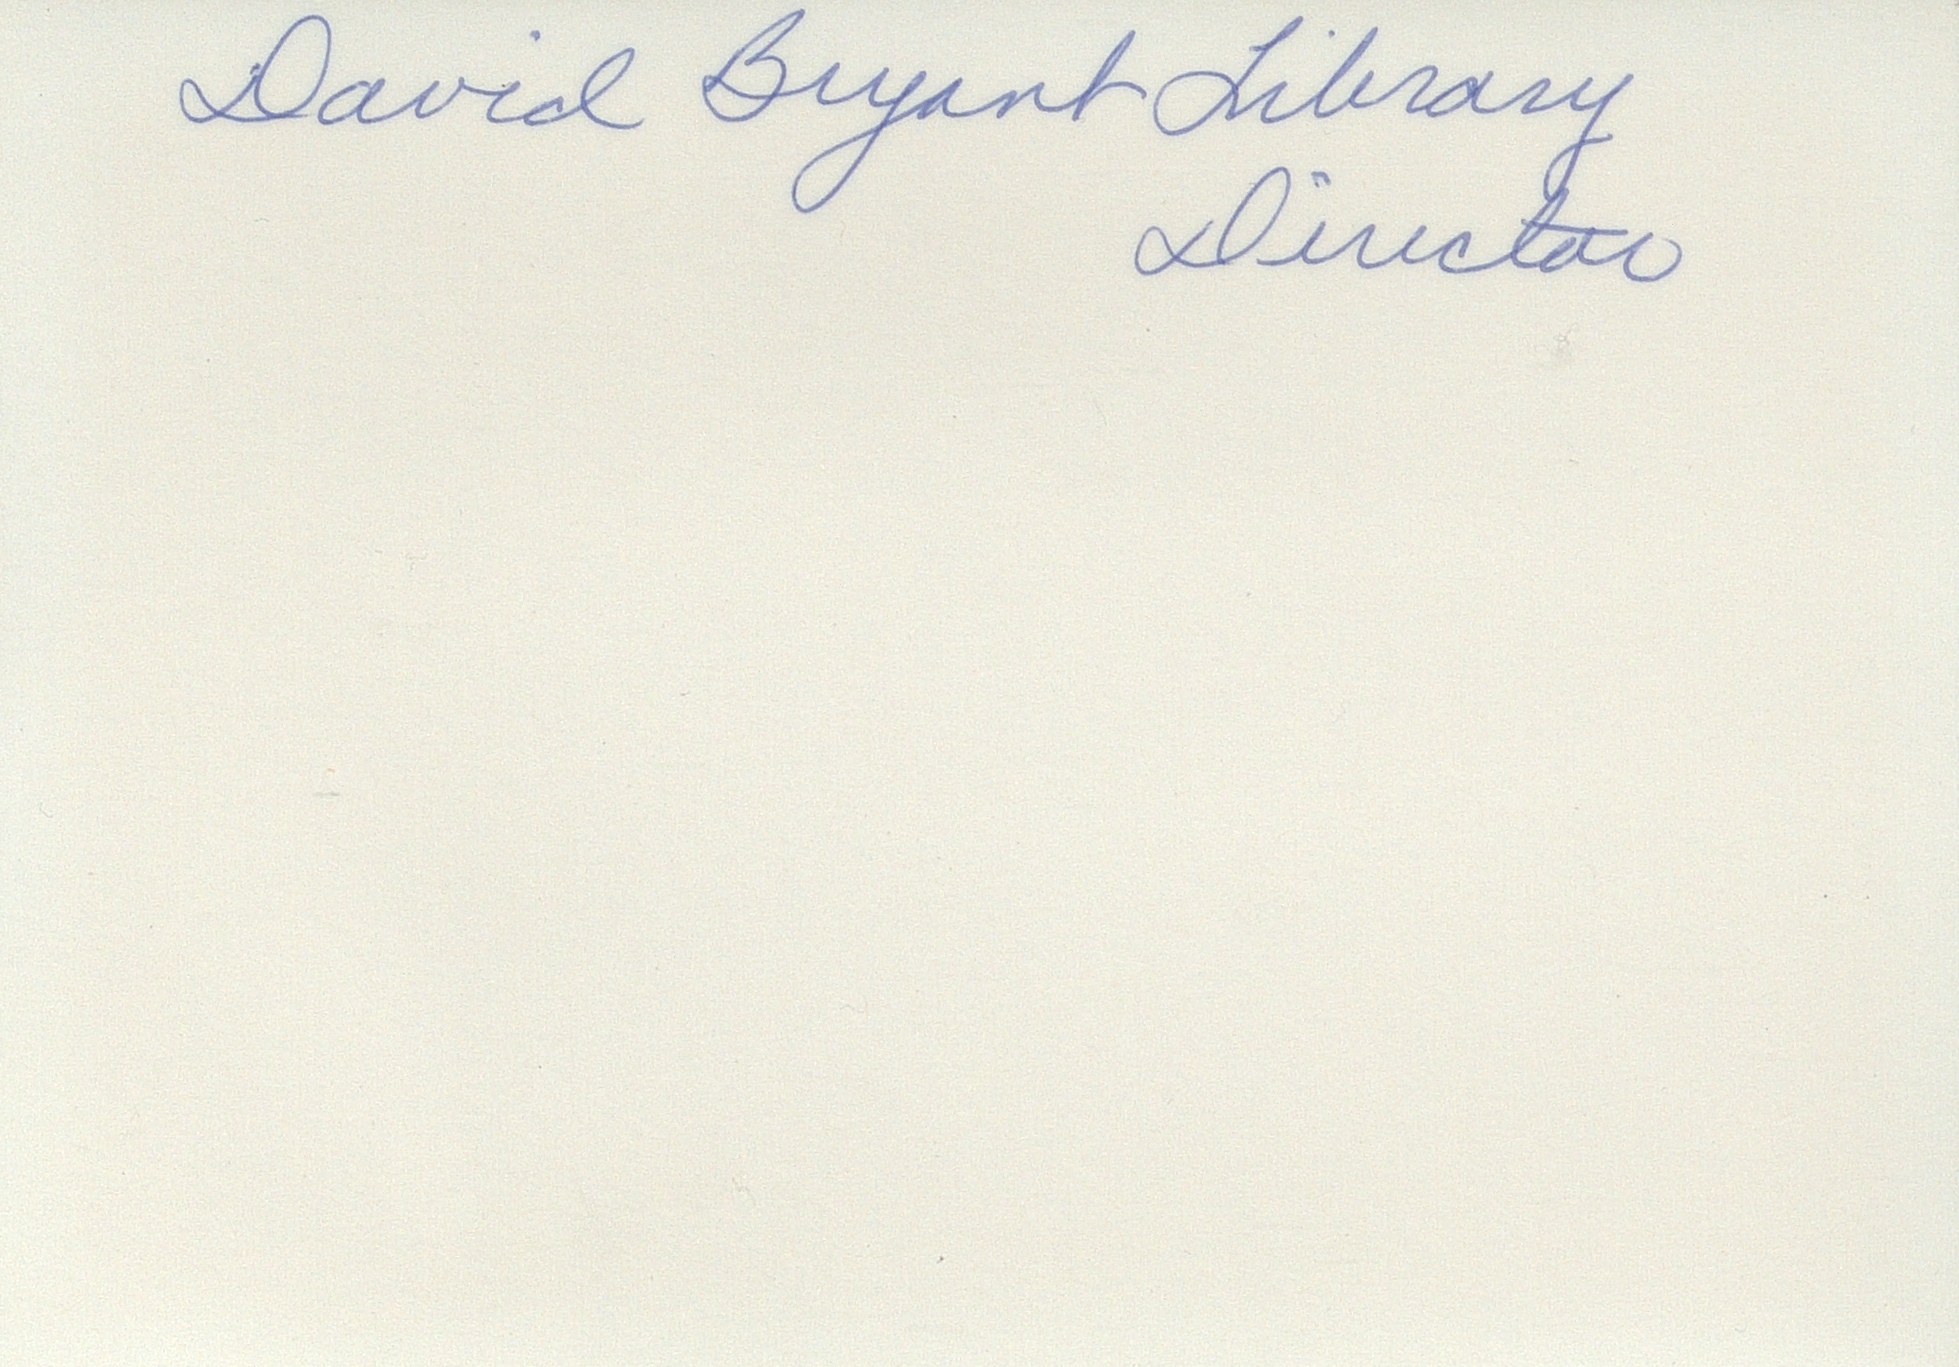 David Bryant Library
Director